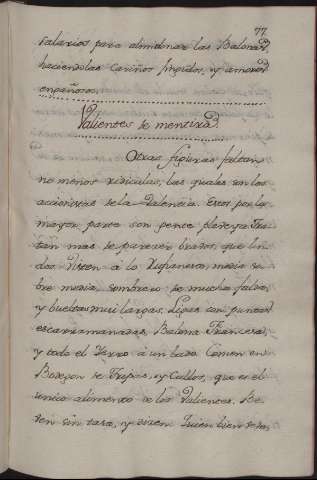 77
salarios para almidonar las Balonas
haciendolas Cariños fingidos, y amores
engañosos.
Valientes de mentira.
Otras figuras faltan
no menos ridiculas, las quales son los
acionistas de la Valencia. Estos por la
mayor parte son gente
tan mas de parecer bravos, que lin
dos Visten á lo Rufianesco, media so
bre media, sombrero de mucha falda,
y bueltas mui largas, Ligas con puntas
escarramanadas, Balona Francesa,
y todo el Yerro á un lado. Comen en
Bodegon de Tripas, y Callos, que es el
unico alimento de los Valientes. Be
ven sin tasa, y dicen Quien bien